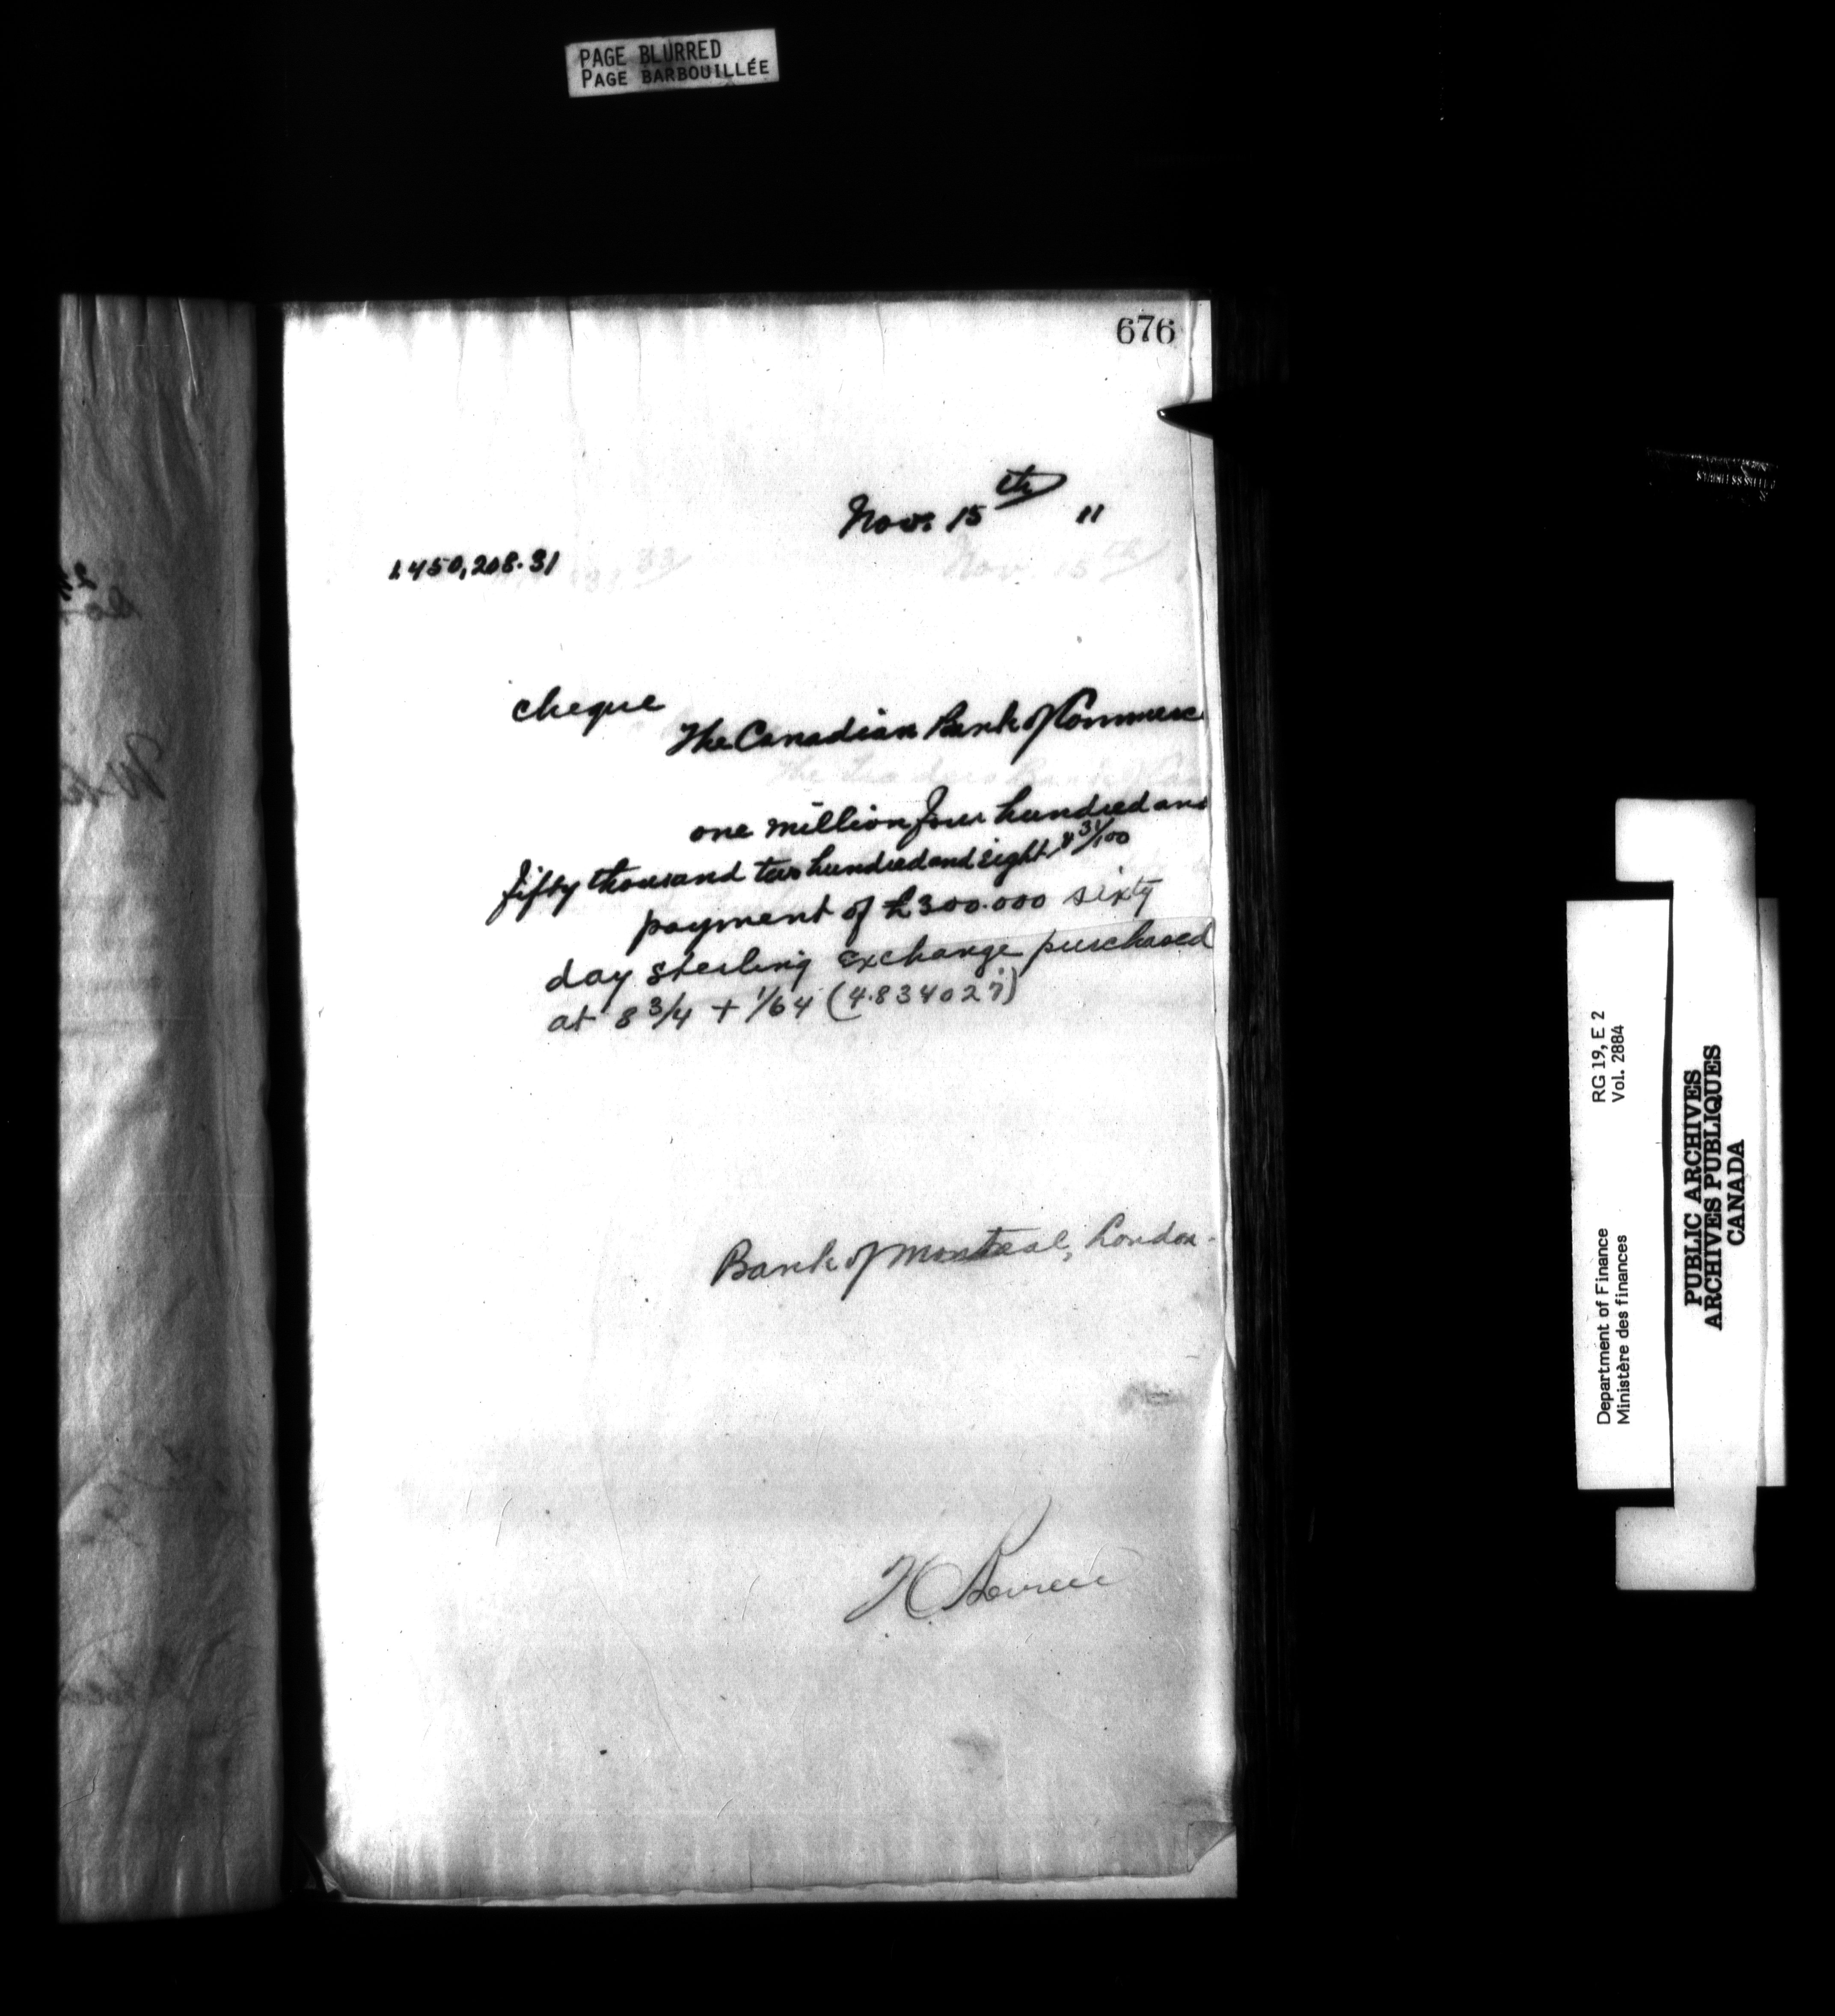 PAGE BLURRED
PAGE BARBOUILLÉE
676
Nov. 15th 11
1,450,208.31
cheque
The Canadian Bank of Commerc
one million four hundred and
fifty thousand two hundred and eight & 31/100
payment of £300.000 sixty
day sterling exchange purchased
at 8 3/4 + 1/64 (4.834027)
Bank of Montreal, London.
RG 19, E 2
Vol. 2884
Department of Finance
Ministère des finances
PUBLIC ARCHIVES
ARCHIVES PUBLIQUES
CANADA